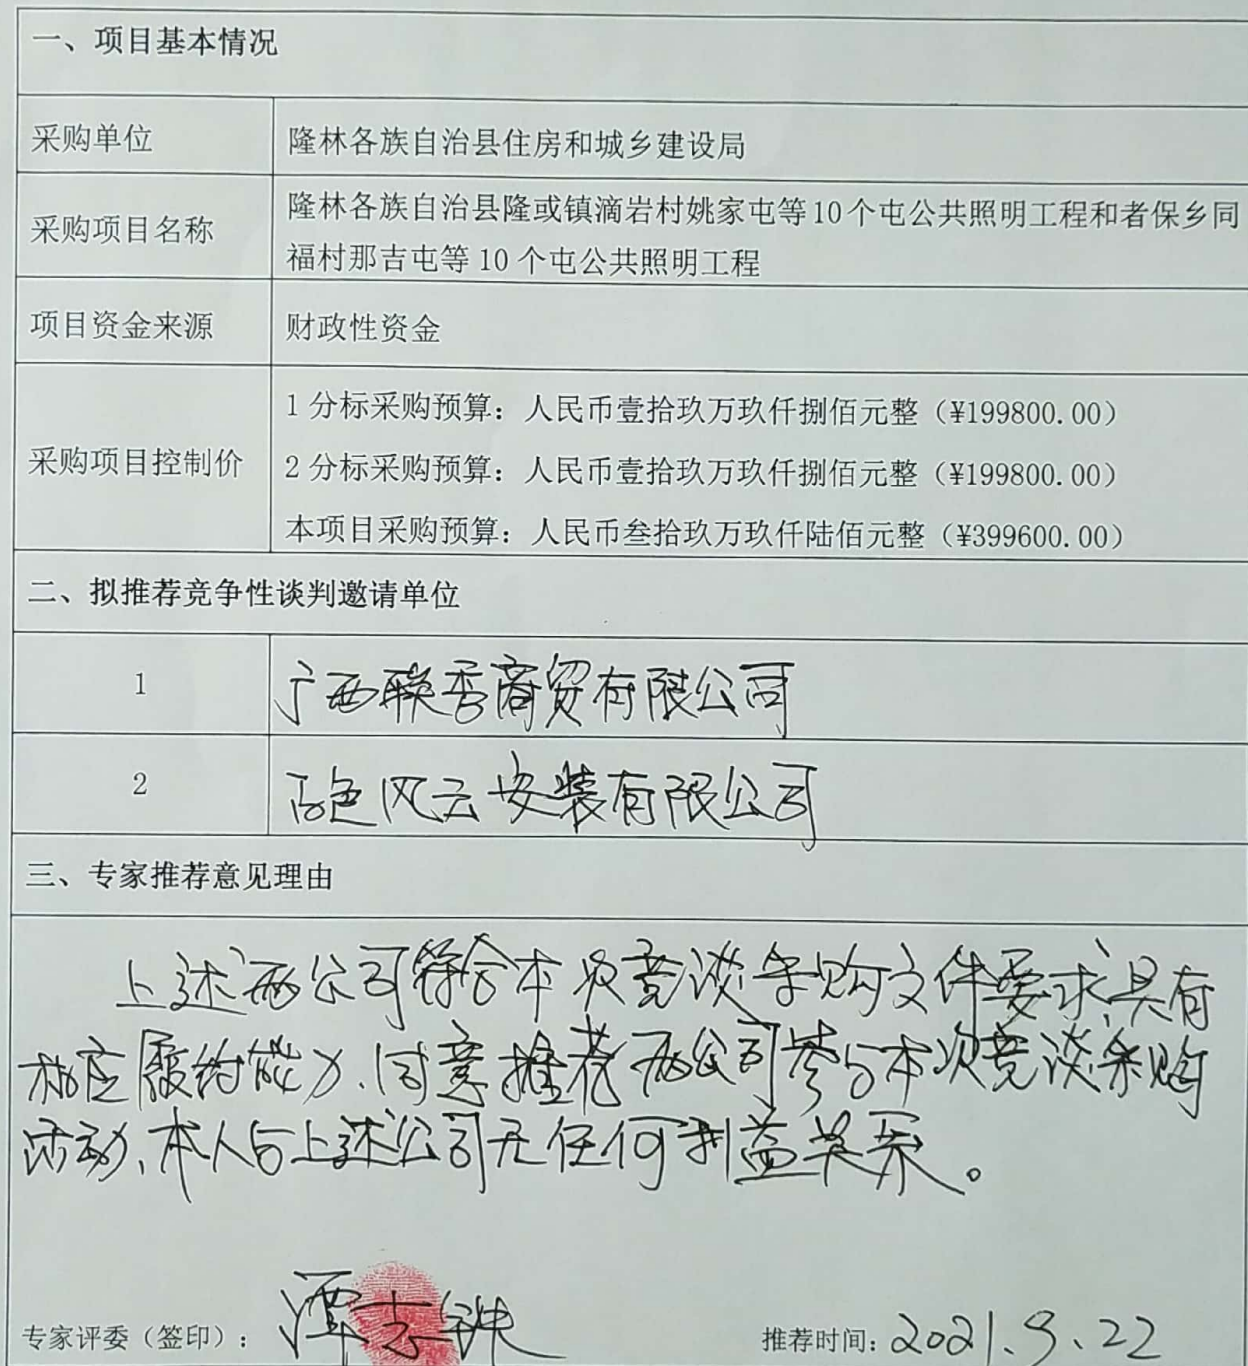 一、项目基本情况
采购单位
隆林各族自治县住房和城乡建设局
采购项目名称
隆林各族自治县隆或镇滴岩村姚家屯等10个屯公共照明工程和者保乡同
福村那吉屯等10个屯公共照明工程
项目资金来源
财政性资金
采购项目控制价
1分标采购预算：人民币壹拾玖万玖仟捌佰元整（¥199800.00）
2分标采购预算：人民币壹拾玖万玖仟捌佰元整（¥199800.00）
本项目采购预算：人民币叁拾玖万玖仟陆佰元整（¥399600.00）
二、拟推荐竞争性谈判邀请单位
1
广西联秀商贸有限公司
2
百色风云安装有限公司
三、专家推荐意见理由
上述两公司符合本次竞谈采购文件要求,具有
相应履约能力、同意推荐两公司参与本次竞谈采购
活动、本人与上述公司无任何利益关系。
专家评委（签印）：
推荐时间：2021.9.22